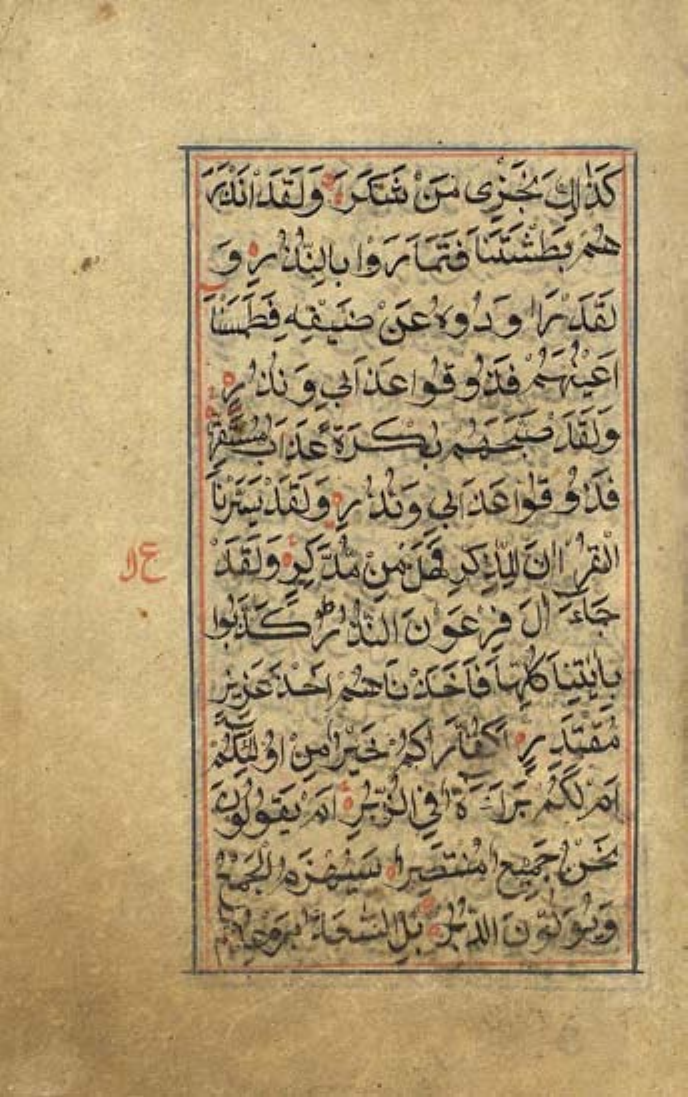 كَذٰلِكَ نَجْزِى مَنْ شَكَرَ وَلَقَدْ اَنْذَرَ
هُمْ بَطْشَتَنَا فَتَمَارَوْا بِالنُّذُرِ وَ
لَقَدْ رَاوَدُوهُ عَنْ ضَيْفِهِ فَطَمَسْنَا
اَعْيُنَهُمْ فَذُوقُوا عَذَابِى وَنُذُرِ
وَلَقَدْ صَبَّحَهُمْ بُكْرَةً عَذَابٌ مُسْتَقِرٌّ
فَذُوقُوا عَذَابِى وَنُذُرِ وَلَقَدْ يَسَّرْنَا
الْقُرْاٰنَ لِلذِّكْرِ فَهَلْ مِنْ مُدَّكِرٍ وَلَقَدْ
جَاءَ اٰلَ فِرْعَوْنَ النُّذُرُ كَذَّبُوا
بِاٰيٰتِنَا كُلِّهَا فَاَخَذْنَاهُمْ اَخْذَ عَزِيزٍ
مُقْتَدِرٍ اَكُفَّارُكُمْ خَيْرٌ مِنْ اُولٰئِكُمْ
اَمْ لَكُمْ بَرَاءَةٌ فِى الزُّبُرِ اَمْ يَقُولُونَ
نَحْنُ جَمِيعٌ مُنْتَصِرٌ سَيُهْزَمُ الْجَمْعُ
وَيُوَلُّونَ الدُّبُرَ بَلِ السَّاعَةُ